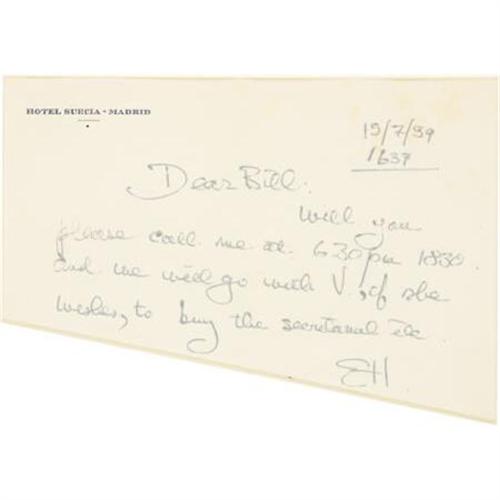 HOTEL SUECIA - MADRID
15/7/59
1637
Dear Bill.
Will you
please call me at 630pm 1830
and we will go with V, if she
wishes, to buy the secretarial etc
EH